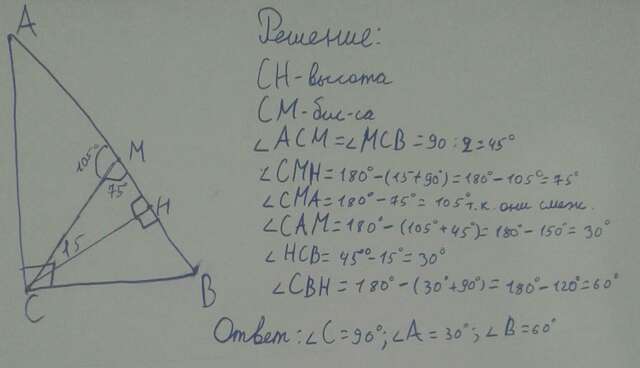 A
M
105°
75
H
15
C
B
Решение:
CH - высота
CM - бис-са
∠ACM = ∠MCB = 90 : 2 = 45°
∠CMH = 180° - (15 + 90°) = 180° - 105° = 75°
∠CMA = 180° - 75° = 105° т.к. они смеж.
∠CAM = 180° - (105° + 45°) = 180° - 150° = 30°
∠HCB = 45° - 15° = 30°
∠CBH = 180° - (30° + 90°) = 180° - 120° = 60°
Ответ: ∠C = 90°; ∠A = 30°; ∠B = 60°